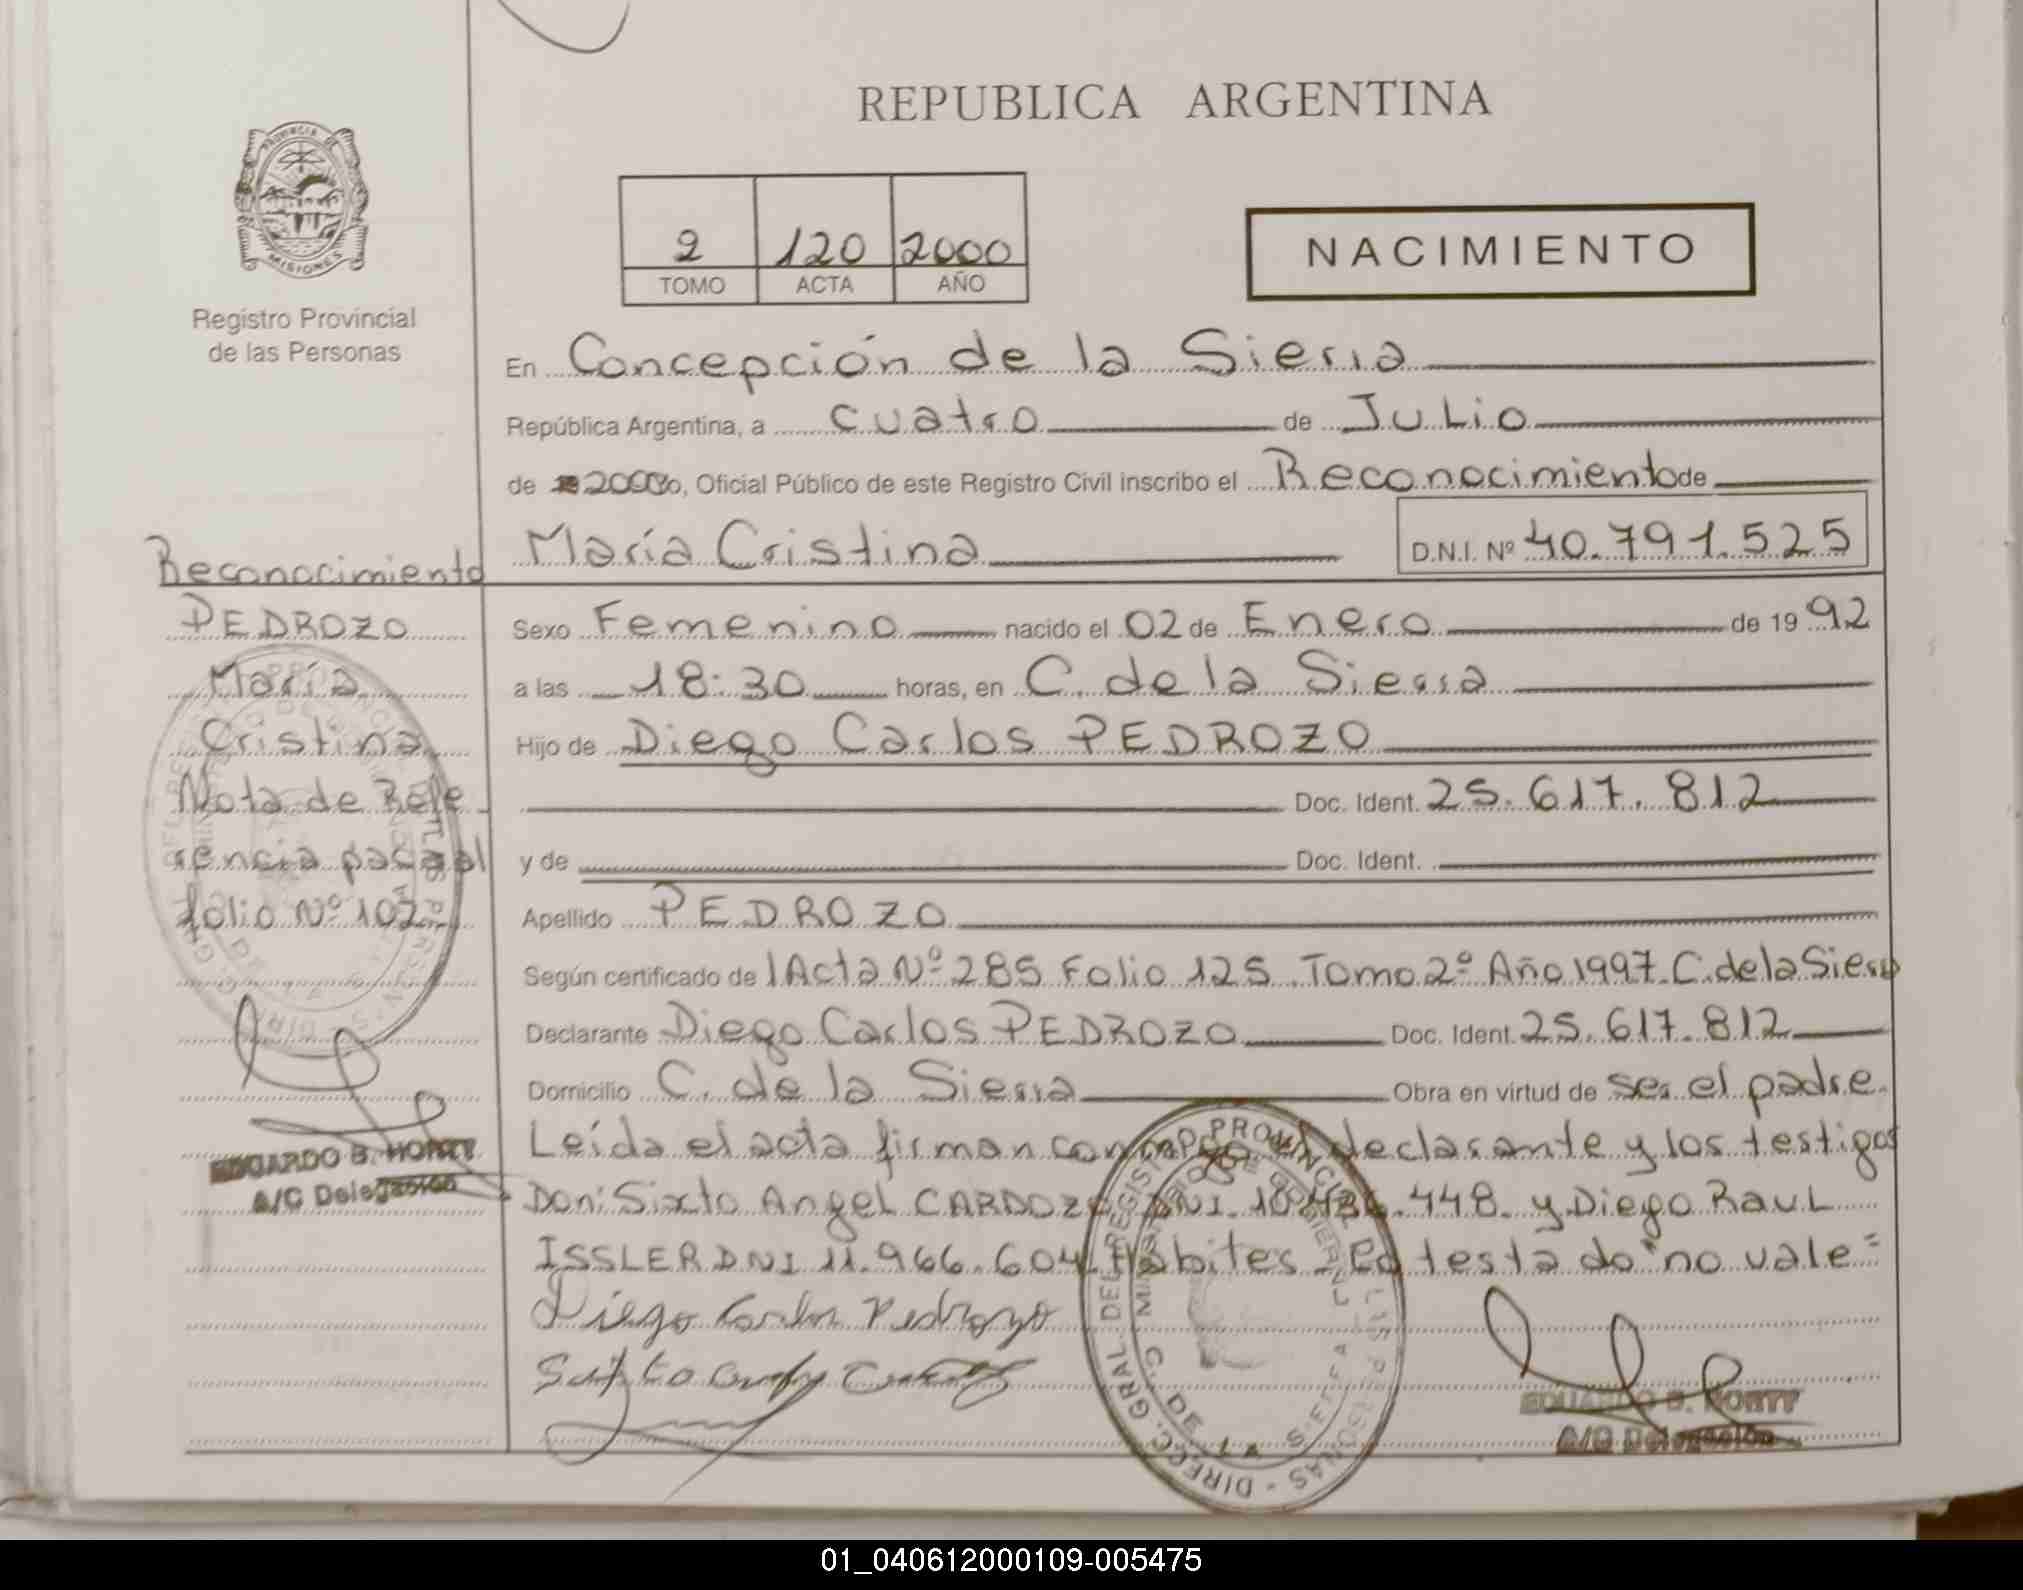 REPUBLICA ARGENTINA
PROVINCIA DE
MISIONES
Registro Provincial
de las Personas
2 120 2000
TOMO ACTA AÑO
NACIMIENTO
En Concepción de la Sierra
República Argentina, a cuatro de Julio
de 2000, Oficial Público de este Registro Civil inscribo el Reconocimiento de
María Cristina D.N.I. Nº 40.791.525
Reconocimiento
PEDROZO
María
Cristina
Nota de Refe
rencia pasa al
folio Nº 102
EDUARDO B. HORTT
A/C Delegación
Sexo Femenino nacido el 02 de Enero de 1992
a las 18:30 horas, en C. de la Sierra
Hijo de Diego Carlos PEDROZO
Doc. Ident. 25.617.812
y de Doc. Ident.
Apellido PEDROZO
Según certificado de Acta Nº 285 Folio 125 Tomo 2º Año 1997 C. de la Sierra
Declarante Diego Carlos PEDROZO Doc. Ident. 25.617.812
Domicilio C. de la Sierra Obra en virtud de ser el padre
Leída el acta firman conmigo el declarante y los testigos
Don: Sixto Angel CARDOZO DNI .448 y Diego Raul
ISSLER DNI 11.966.604 Habites Lo testado "no vale"
Diego Carlos Pedrozo
EDUARDO B. HORTT
A/C Delegación
DIRECC. GRAL DEL REGISTRO PROVINCIAL DE LAS PERSONAS
MINISTERIO DE GOBIERNO
C. DE LA SIERRA
01_040612000109-005475